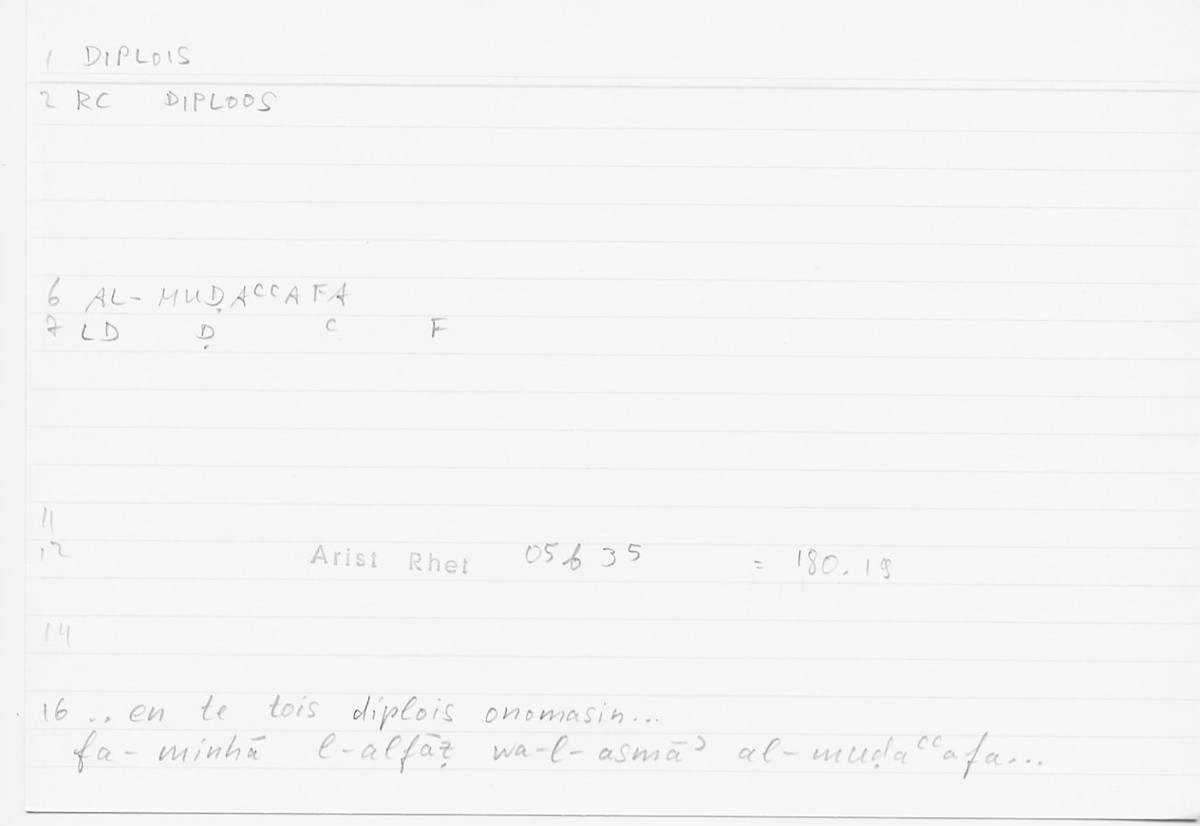 1 DIPLOIS
2 RC DIPLOOS
6 AL-MUḌAᶜᶜAFA
7 LD Ḍ ᶜ F
11
12 Arist Rhet 05b35 = 180.19
14
16 .. en te tois diplois onomasin...
fa-minhā l-alfāẓ wa-l-asmāʾ al-muḍaᶜᶜafa...